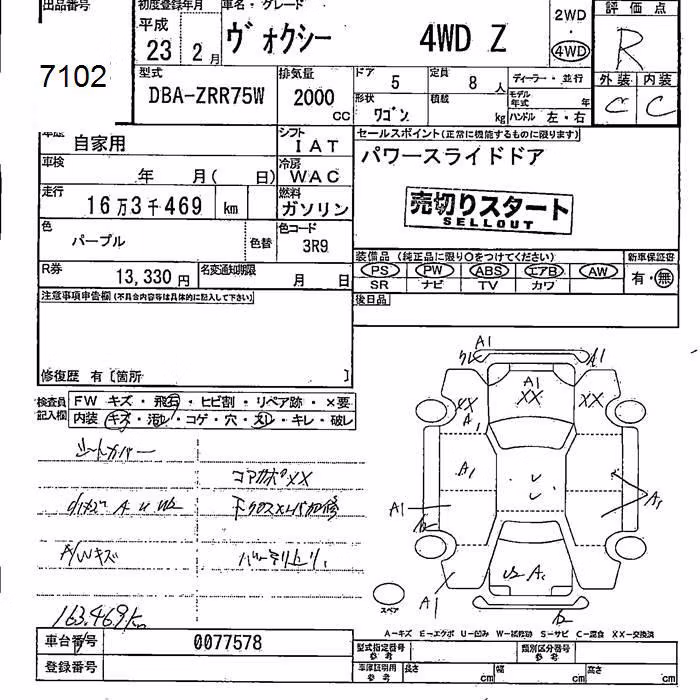 出品番号 初度登録年月 車名・グレード 評価点
平成 2WD
7102 23 2月 ヴォクシー 4WD Z 4WD R
型式 排気量 ドア 5 定員 8人 ディーラー・並行 外装 内装
DBA-ZRR75W 2000cc 形状 ワゴン 積載 kg モデル年式 年 ハンドル 左・右 C C
車歴 自家用 シフト IAT セールスポイント(正常に機能するものに限ります)
車検 年 月( 日) 冷房 WAC パワースライドドア
走行 16万3千469 km 燃料 ガソリン 売切りスタート
SELLOUT
色 パープル 色替 色コード 3R9
装備品(純正品に限り○をつけてください) 新車保証書
R券 13,330円 名変通知期限 月 日 PS PW ABS エアB AW 有・無
SR ナビ TV カワ
注意事項申告欄(不具合内容等は具体的に記入して下さい) 後日品
修復歴 有 [箇所 ]
検査員記入欄 FW キズ・飛石・ヒビ割・リペア跡・×要
内装 キズ・汚れ・コゲ・穴・スレ・キレ・破レ
A1 A1
A1
XX XX XX
A1
A1
A1 A1
U2 A1
A1
シートカバー
コアサポXX
A/Wキズ
163.469km
スペア
A-キズ E-エクボ U-凹み W-補修跡 S-サビ C-腐食 XX-交換済
車台番号 0077578 型式指定番号 参考 類別区分番号 参考
登録番号 車庫証明用 参考 長さ cm 幅 cm 高さ cm